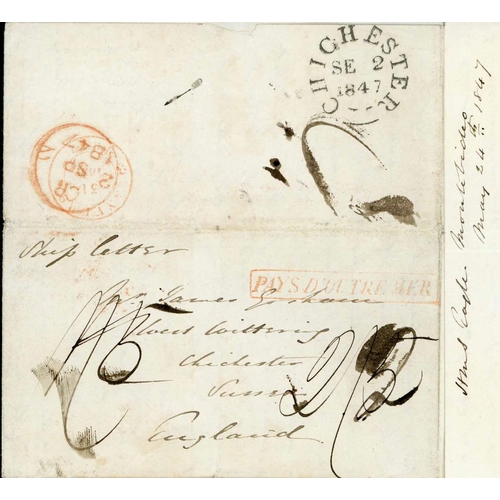 CHICHESTER
SE 2
1847
1847
Ship letter
PAYS D'OUTREMER
James Graham
West Wittering
Chichester
Sussex
England
2/5
HMS Eagle Montevideo
May 24th 1847